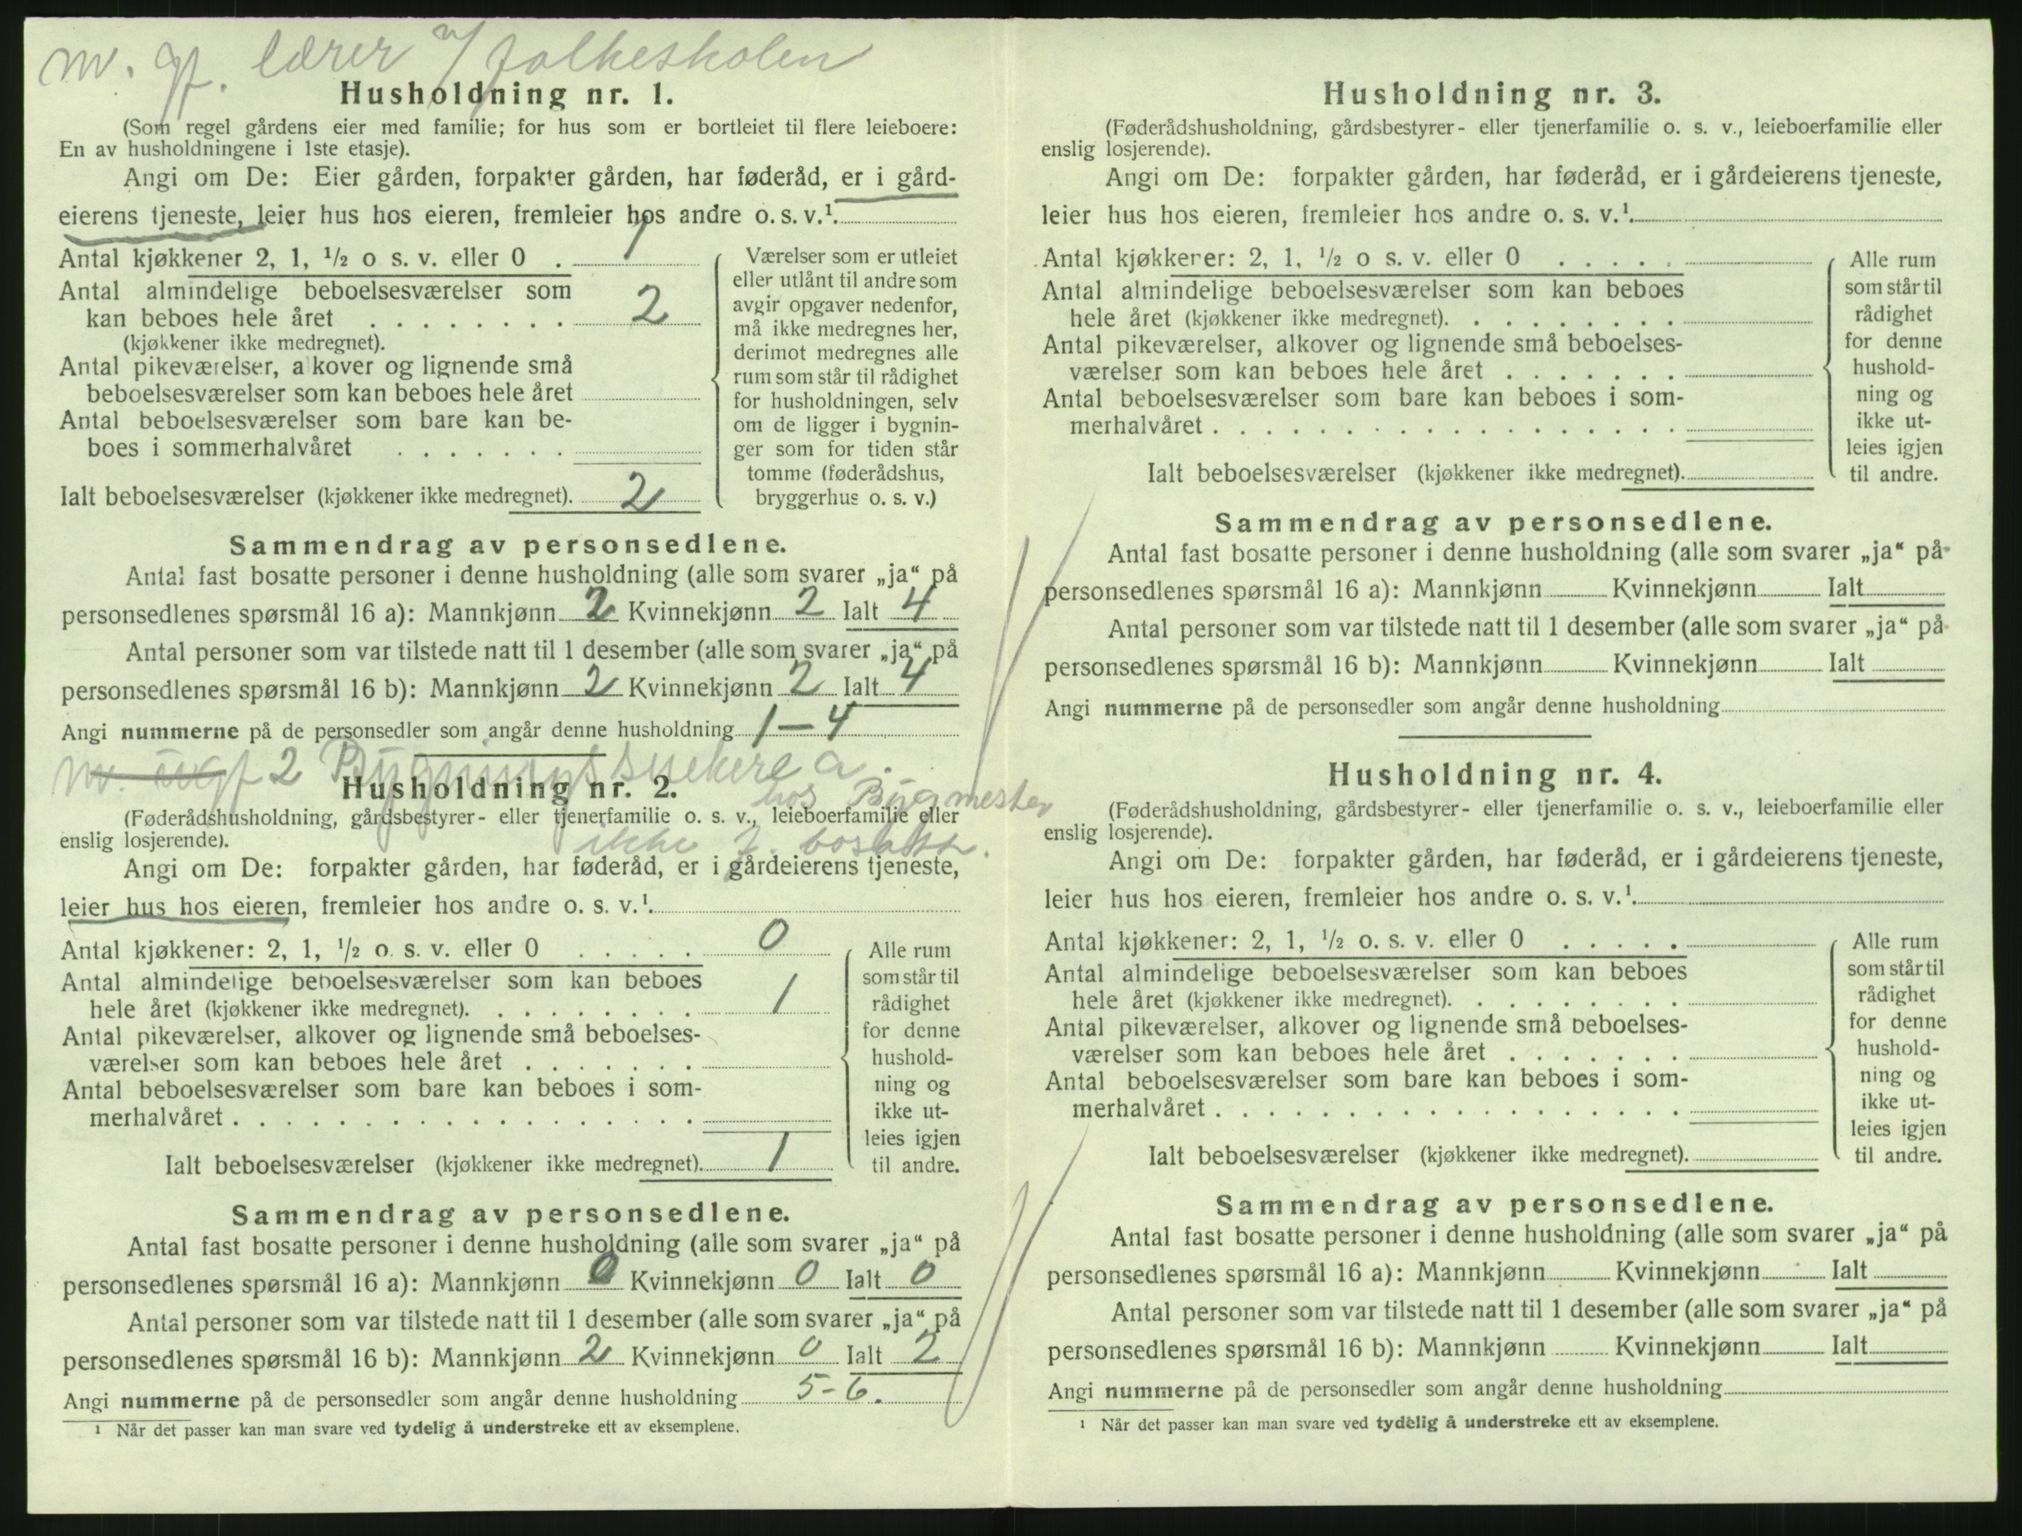 m. gf. lærer v/ folkeskolen
Husholdning nr. 1.
(Som regel gårdens eier med familie; for hus som er bortleiet til flere leieboere:
En av husholdningene i 1ste etasje).
Angi om De: Eier gården, forpakter gården, har føderåd, er i gård-
eierens tjeneste, leier hus hos eieren, fremleier hos andre o. s. v.¹.
Antal kjøkkener 2, 1, ½ o s. v. eller 0 . 1
Antal almindelige beboelsesværelser som
kan beboes hele året . . . . . . . . 2
(kjøkkener ikke medregnet).
Antal pikeværelser, alkover og lignende små
beboelsesværelser som kan beboes hele året
Antal beboelsesværelser som bare kan be-
boes i sommerhalvåret . . . . . . .
Ialt beboelsesværelser (kjøkkener ikke medregnet). 2
Værelser som er utleiet
eller utlånt til andre som
avgir opgaver nedenfor,
må ikke medregnes her,
derimot medregnes alle
rum som står til rådighet
for husholdningen, selv
om de ligger i bygnin-
ger som for tiden står
tomme (føderådshus,
bryggerhus o. s. v.)
Sammendrag av personsedlene.
Antal fast bosatte personer i denne husholdning (alle som svarer „ja“ på
personsedlenes spørsmål 16 a): Mannkjønn 2 Kvinnekjønn 2 Ialt 4
Antal personer som var tilstede natt til 1 desember (alle som svarer „ja“ på
personsedlenes spørsmål 16 b): Mannkjønn 2 Kvinnekjønn 2 Ialt 4
Angi nummerne på de personsedler som angår denne husholdning 1-4
2 Bygningssnekere a.
Husholdning nr. 2.
hos Bygmester
(Føderådshusholdning, gårdsbestyrer- eller tjenerfamilie o. s. v., leieboerfamilie eller
enslig losjerende).
ikke f. bosatte.
Angi om De: forpakter gården, har føderåd, er i gårdeierens tjeneste,
leier hus hos eieren, fremleier hos andre o. s. v.¹.
Antal kjøkkener: 2, 1, ½ o. s. v. eller 0 . . . . . 0
Antal almindelige beboelsesværelser som kan beboes
hele året (kjøkkener ikke medregnet). . . . . . . . . 1
Antal pikeværelser, alkover og lignende små beboelses-
værelser som kan beboes hele året . . . . . . .
Antal beboelsesværelser som bare kan beboes i som-
merhalvåret . . . . . . . . . . . . . . . . . .
Ialt beboelsesværelser (kjøkkener ikke medregnet). 1
Alle rum
som står til
rådighet
for denne
hushold-
ning og
ikke ut-
leies igjen
til andre.
Sammendrag av personsedlene.
Antal fast bosatte personer i denne husholdning (alle som svarer „ja“ på
personsedlenes spørsmål 16 a): Mannkjønn 0 Kvinnekjønn 0 Ialt 0
Antal personer som var tilstede natt til 1 desember (alle som svarer „ja“ på
personsedlenes spørsmål 16 b): Mannkjønn 2 Kvinnekjønn 0 Ialt 2
Angi nummerne på de personsedler som angår denne husholdning 5-6.
¹ Når det passer kan man svare ved tydelig å understreke ett av eksemplene.
Husholdning nr. 3.
(Føderådshusholdning, gårdsbestyrer- eller tjenerfamilie o. s. v., leieboerfamilie eller
enslig losjerende).
Angi om De: forpakter gården, har føderåd, er i gårdeierens tjeneste,
leier hus hos eieren, fremleier hos andre o. s. v.¹.
Antal kjøkkener: 2, 1, ½ o s. v. eller 0 . . . . .
Antal almindelige beboelsesværelser som kan beboes
hele året (kjøkkener ikke medregnet). . . . . . . . .
Antal pikeværelser, alkover og lignende små beboelses-
værelser som kan beboes hele året . . . . . . .
Antal beboelsesværelser som bare kan beboes i som-
merhalvåret . . . . . . . . . . . . . . . . . .
Ialt beboelsesværelser (kjøkkener ikke medregnet).
Alle rum
som står til
rådighet
for denne
hushold-
ning og
ikke ut-
leies igjen
til andre.
Sammendrag av personsedlene.
Antal fast bosatte personer i denne husholdning (alle som svarer „ja“ på
personsedlenes spørsmål 16 a): Mannkjønn Kvinnekjønn Ialt
Antal personer som var tilstede natt til 1 desember (alle som svarer „ja“ på
personsedlenes spørsmål 16 b): Mannkjønn Kvinnekjønn Ialt
Angi nummerne på de personsedler som angår denne husholdning
Husholdning nr. 4.
(Føderådshusholdning, gårdsbestyrer- eller tjenerfamilie o. s. v., leieboerfamilie eller
enslig losjerende).
Angi om De: forpakter gården, har føderåd, er i gårdeierens tjeneste,
leier hus hos eieren, fremleier hos andre o. s. v.¹.
Antal kjøkkener: 2, 1, ½ o. s. v. eller 0 . . . . .
Antal almindelige beboelsesværelser som kan beboes
hele året (kjøkkener ikke medregnet). . . . . . . . .
Antal pikeværelser, alkover og lignende små beboelses-
værelser som kan beboes hele året . . . . . . .
Antal beboelsesværelser som bare kan beboes i som-
merhalvåret . . . . . . . . . . . . . . . . . .
Ialt beboelsesværelser (kjøkkener ikke medregnet).
Alle rum
som står til
rådighet
for denne
hushold-
ning og
ikke ut-
leies igjen
til andre.
Sammendrag av personsedlene.
Antal fast bosatte personer i denne husholdning (alle som svarer „ja“ på
personsedlenes spørsmål 16 a): Mannkjønn Kvinnekjønn Ialt
Antal personer som var tilstede natt til 1 desember (alle som svarer „ja“ på
personsedlenes spørsmål 16 b): Mannkjønn Kvinnekjønn Ialt
Angi nummerne på de personsedler som angår denne husholdning
¹ Når det passer kan man svare ved tydelig å understreke ett av eksemplene.